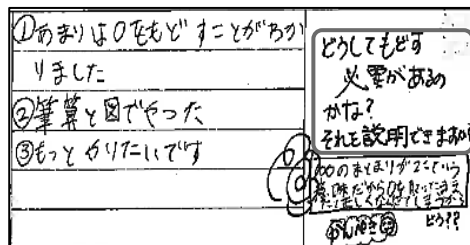 ①あまりは0をもどすことがわか
りました
②筆算と図でやった
③もっとやりたいです
どうしてもどす
必要があるの
かな?
それを説明できますか
のまとまりが2こという
意味だから0を
どう??